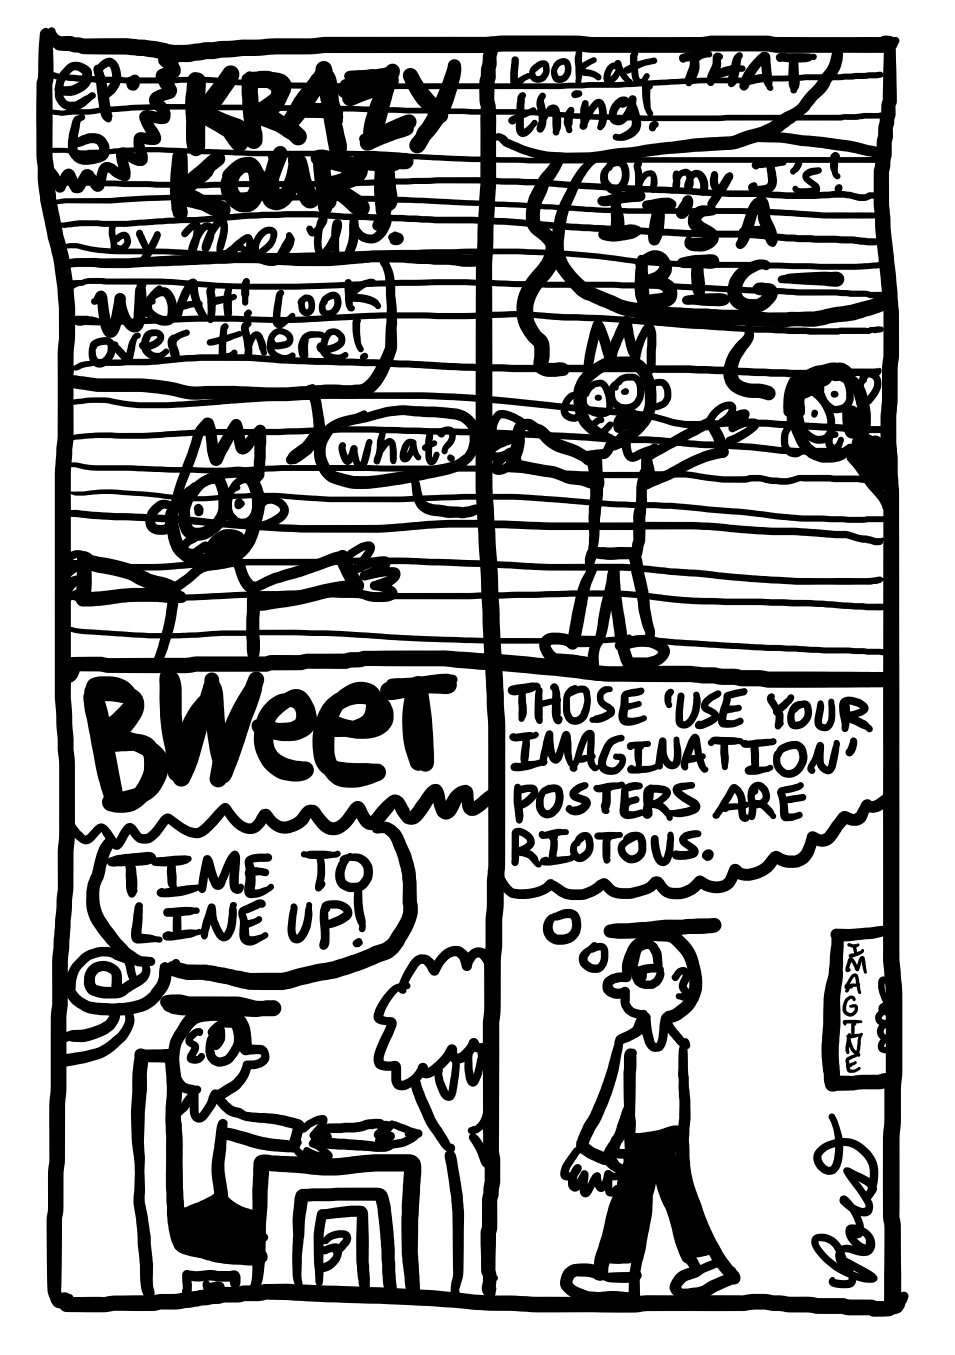 ep.
6
KRAZY
KOURT
by Moe W.
WOAH! Look
over there!
what?
Look at THAT
thing!
Oh my J's!
IT'S A
BIG—
BWeeT
TIME TO
LINE UP!
THOSE 'USE YOUR
IMAGINATION'
POSTERS ARE
RIOTOUS.
IMAGINE